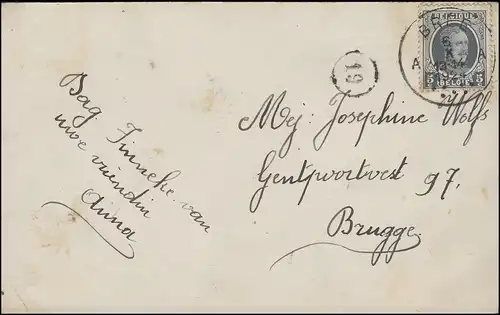 Dag Finneke van
uwe vriendin
Anna
19
BELGIQUE
5 5
BELGIE
A A
13-14
Mej: Josephine Wolfs
Gentpoortvest 97.
Brugge.